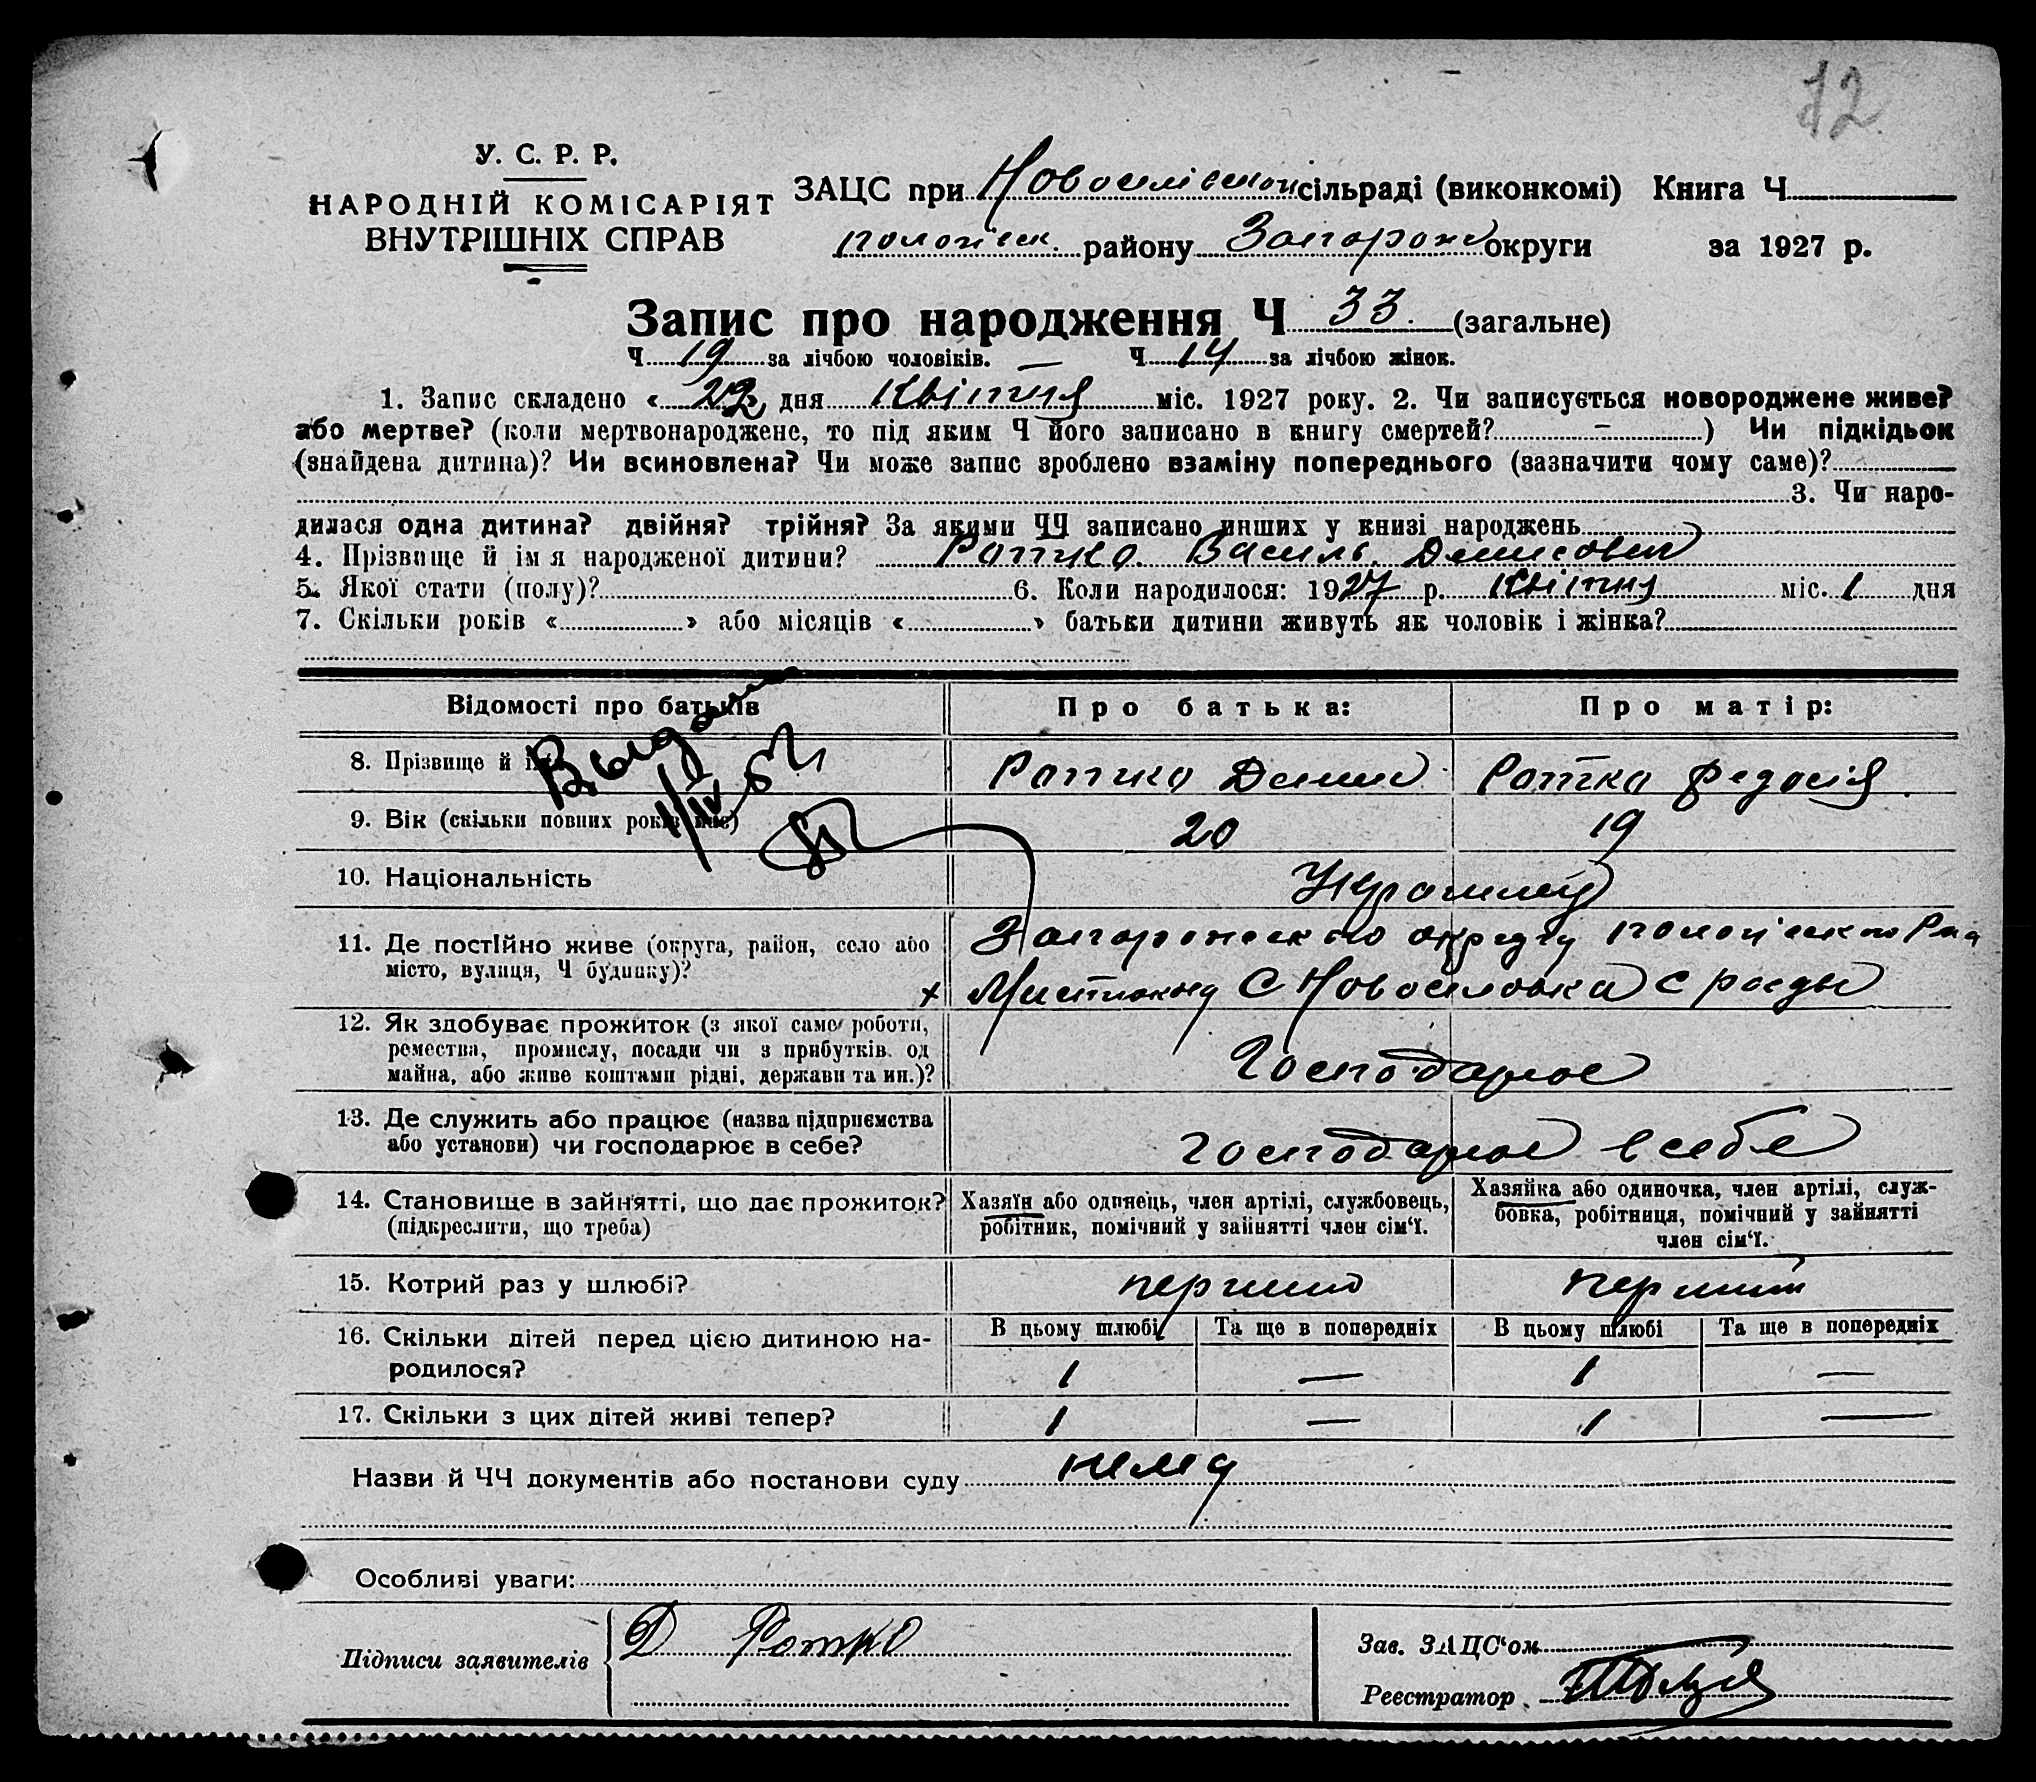 12
У. С. Р. Р.
НАРОДНІЙ КОМІСАРІЯТ
ВНУТРІШНІХ СПРАВ
ЗАЦС при Новоселівскои сільраді (виконкомі) Книга Ч
району Запорожс округи за 1927 р.
Запис про народження Ч 33. (загальне)
Ч 19 за лічбою чоловіків. — Ч 14 за лічбою жінок.
1. Запис складено « 22 дня Квітня міс. 1927 року. 2. Чи записується новороджене живе?
або мертве? (коли мертвонароджене, то під яким Ч його записано в книгу смертей? – ) Чи підкідьок
(знайдена дитина)? Чи всиновлена? Чи може запис зроблено взаміну попереднього (зазначити чому саме)?
3. Чи наро-
дилася одна дитина? двійня? трійня? За якими ЧЧ записано инших у книзі народжень
4. Прізвище й ім я народженої дитини? Ратко Василь Денисович
5. Якої стати (полу)? 6. Коли народилося: 1927 р. Квітня міс. 1 дня
7. Скільки років « » або місяців « » батьки дитини живуть як чоловік і жінка?
Відомості про батьків Про батька: Про матір:
8. Прізвище й ім'я Ратко Денис Ратка Федосія
9. Вік (скільки повних років має) 20 19
10. Національність
11. Де постійно живе (округа, район, село або
місто, вулиця, Ч будинку)?
Запорожского округу
С Новоселовка
12. Як здобуває прожиток (з якої саме роботи,
ремества, промислу, посади чи з прибутків од
майна, або живе коштами рідні, держави та ин.)?
Господарює
13. Де служить або працює (назва підприємства
або установи) чи господарює в себе?
господарює в себе
14. Становище в зайнятті, що дає прожиток?
(підкреслити, що треба)
Хазяїн або одинець, член артілі, службовець,
робітник, помічний у зайнятті член сім'ї.
Хазяйка або одиночка, член артілі, служ-
бовка, робітниця, помічний у зайнятті
член сім'ї.
15. Котрий раз у шлюбі? первий перший
16. Скільки дітей перед цією дитиною на-
родилося?
В цьому шлюбі Та ще в попередніх В цьому шлюбі Та ще в попередніх
1 — 1 —
17. Скільки з цих дітей живі тепер? 1 — 1 —
Назви й ЧЧ документів або постанови суду нема
Особливі уваги:
Підписи заявителів Д Ротко
Зав. ЗАЦС'ом
Реєстратор